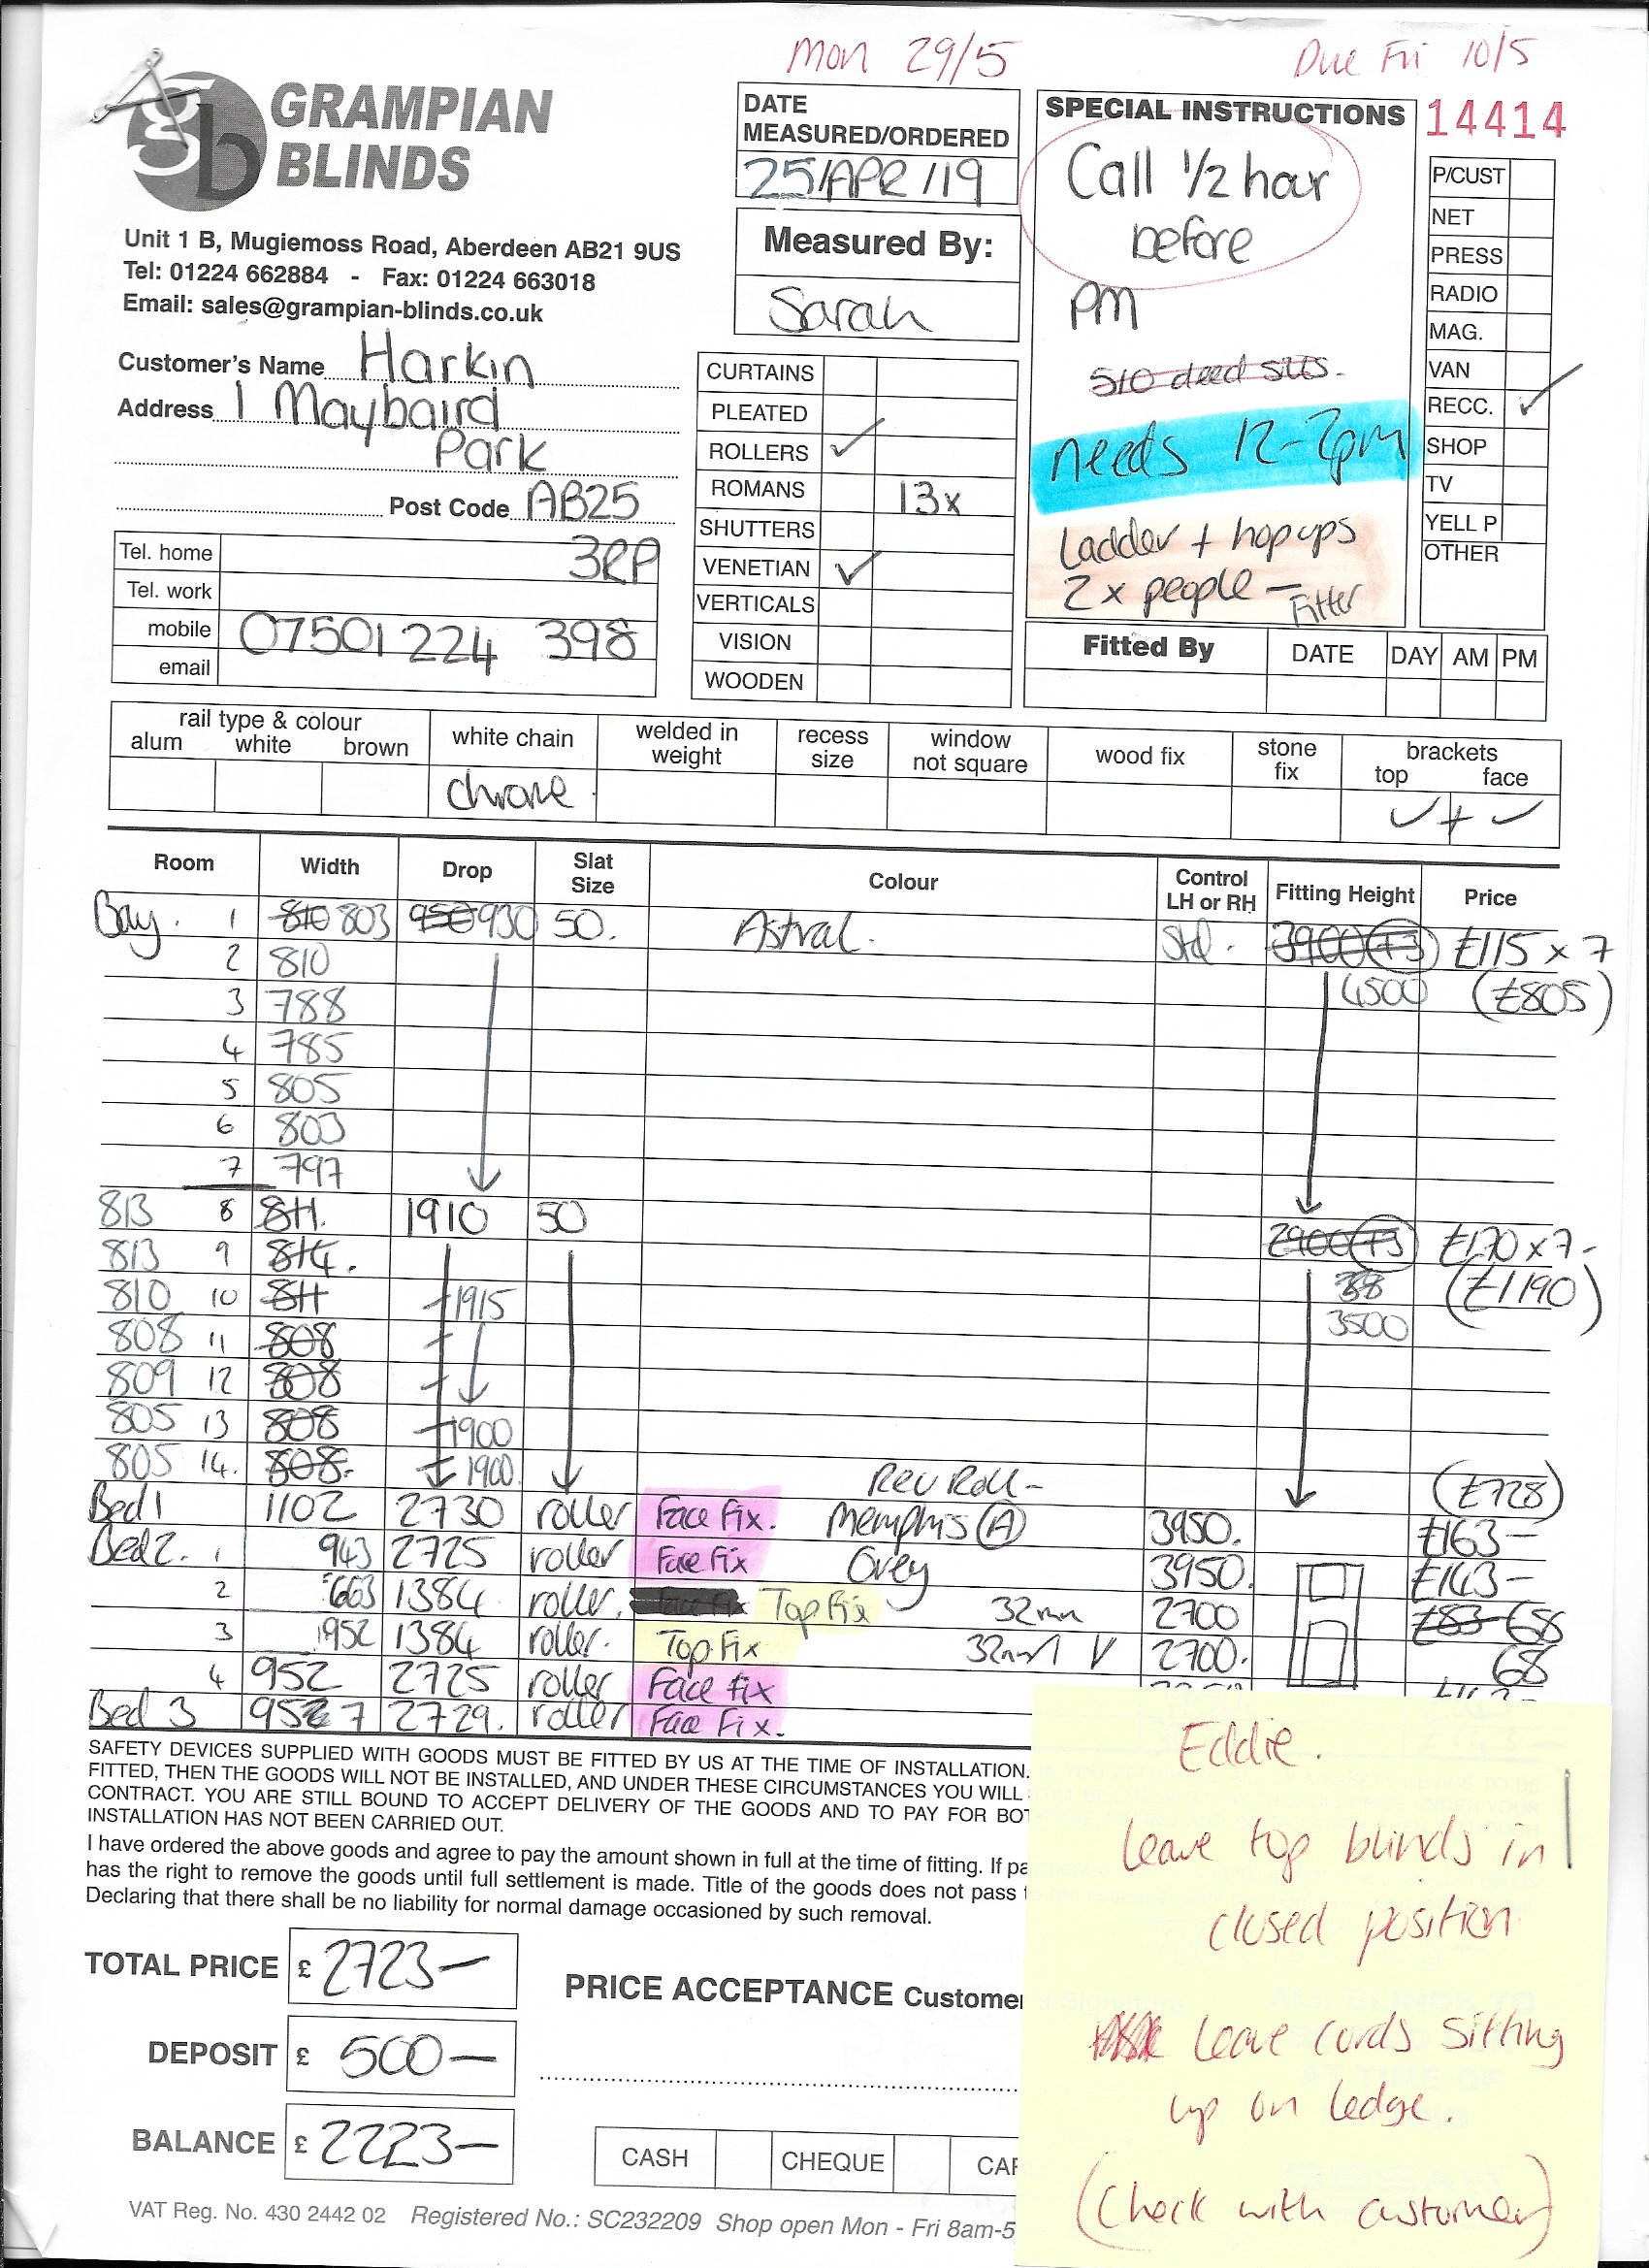 Mon 29/5
Due Fri 10/5
GRAMPIAN
BLINDS
Unit 1 B, Mugiemoss Road, Aberdeen AB21 9US
Tel: 01224 662884 - Fax: 01224 663018
Email: sales@grampian-blinds.co.uk
Customer's Name Harkin
Address 1 Maybaird
Park
Post Code AB25
3RP
Tel. home
Tel. work
mobile 07501 224 398
email
DATE
MEASURED/ORDERED
25/APR/19
Measured By:
Sarah
CURTAINS
PLEATED
ROLLERS ✓
ROMANS 13x
SHUTTERS
VENETIAN ✓
VERTICALS
VISION
WOODEN
SPECIAL INSTRUCTIONS
Call 1/2 hour
before
PM
needs 12-2pm
Ladder + hop ups
2 x people - Fitter
14414
P/CUST
NET
PRESS
RADIO
MAG.
VAN
RECC. ✓
SHOP
TV
YELL P
OTHER
Fitted By DATE DAY AM PM
rail type & colour
alum white brown
white chain
chrome
welded in
weight
recess
size
window
not square
wood fix
stone
fix
brackets
top face
✓ + ✓
Room Width Drop Slat Size Colour Control LH or RH Fitting Height Price
Bay. 1 810 803 950 930 50. Astral. Std. 3900 (T3) £115 x 7
2 810 4500 (£805)
3 788
4 785
5 805
6 803
7 797
813 8 811. 1910 50 2900 (T3) £170 x 7-
813 9 814. 38 (£1190)
810 10 811 1915 3500
808 11 808
809 12 808
805 13 808 1900
805 14. 808. 1900 Rev Roll- (£728)
Bed 1 1102 2730 roller Face Fix. Memphis (A) 3950. £163-
Bed 2. 1 943 2725 roller Face Fix Grey 3950. £143-
2 663 1384 roller. Top Fix 32mm 2700 £83 68
3 952 1384 roller. Top Fix 32mm 2700. 68
4 952 2725 roller Face fix
Bed 3 957 2729. roller Face Fix.
SAFETY DEVICES SUPPLIED WITH GOODS MUST BE FITTED BY US AT THE TIME OF INSTALLATION.
FITTED, THEN THE GOODS WILL NOT BE INSTALLED, AND UNDER THESE CIRCUMSTANCES YOU WILL
CONTRACT. YOU ARE STILL BOUND TO ACCEPT DELIVERY OF THE GOODS AND TO PAY FOR BOT
INSTALLATION HAS NOT BEEN CARRIED OUT.
I have ordered the above goods and agree to pay the amount shown in full at the time of fitting. If pa
has the right to remove the goods until full settlement is made. Title of the goods does not pass
Declaring that there shall be no liability for normal damage occasioned by such removal.
TOTAL PRICE £ 2723-
DEPOSIT £ 500-
BALANCE £ 2223-
PRICE ACCEPTANCE Custome
CASH CHEQUE CA
VAT Reg. No. 430 2442 02 Registered No.: SC232209 Shop open Mon - Fri 8am-5
Eddie.
Leave top blinds in
closed position
Leave cords sitting
up on ledge.
(Check with customer)